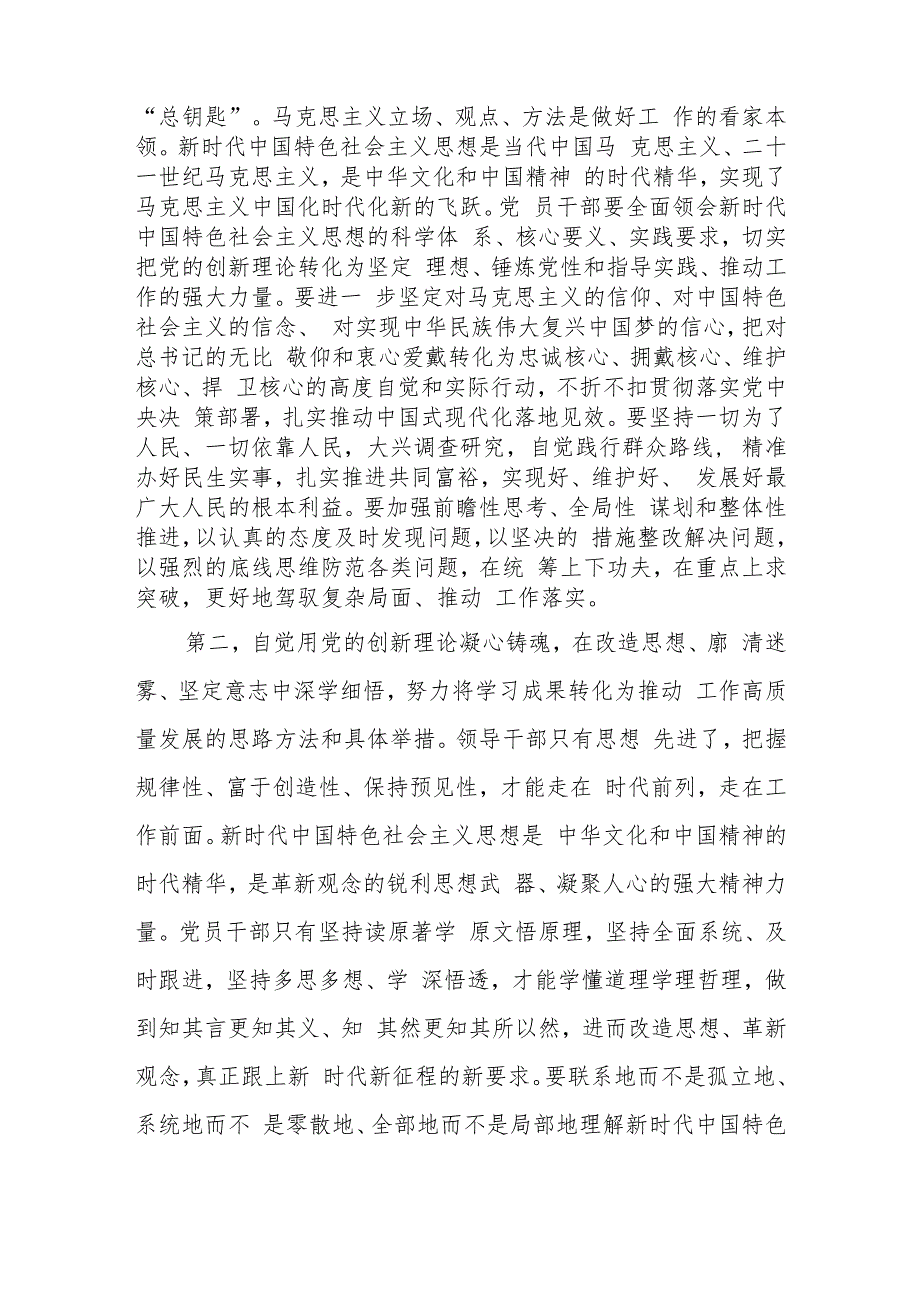 “总钥匙”。马克思主义立场、观点、方法是做好工 作的看家本
领。新时代中国特色社会主义思想是当代中国马 克思主义、二十
一世纪马克思主义，是中华文化和中国精神 的时代精华，实现了
马克思主义中国化时代化新的飞跃。党 员干部要全面领会新时代
中国特色社会主义思想的科学体 系、核心要义、实践要求，切实
把党的创新理论转化为坚定 理想、锤炼党性和指导实践、推动工
作的强大力量。要进一 步坚定对马克思主义的信仰、对中国特色
社会主义的信念、 对实现中华民族伟大复兴中国梦的信心，把对
总书记的无比 敬仰和衷心爱戴转化为忠诚核心、拥戴核心、维护
核心、捍 卫核心的高度自觉和实际行动，不折不扣贯彻落实党中
央决 策部署，扎实推动中国式现代化落地见效。要坚持一切为了
人民、一切依靠人民，大兴调查研究，自觉践行群众路线， 精准
办好民生实事，扎实推进共同富裕，实现好、维护好、 发展好最
广大人民的根本利益。要加强前瞻性思考、全局性 谋划和整体性
推进，以认真的态度及时发现问题，以坚决的 措施整改解决问题，
以强烈的底线思维防范各类问题，在统 筹上下功夫，在重点上求
突破，更好地驾驭复杂局面、推动 工作落实。
第二，自觉用党的创新理论凝心铸魂，在改造思想、廓 清迷
雾、坚定意志中深学细悟，努力将学习成果转化为推动 工作高质
量发展的思路方法和具体举措。领导干部只有思想 先进了，把握
规律性、富于创造性、保持预见性，才能走在 时代前列，走在工
作前面。新时代中国特色社会主义思想是 中华文化和中国精神的
时代精华，是革新观念的锐利思想武 器、凝聚人心的强大精神力
量。党员干部只有坚持读原著学 原文悟原理，坚持全面系统、及
时跟进，坚持多思多想、学 深悟透，才能学懂道理学理哲理，做
到知其言更知其义、知 其然更知其所以然，进而改造思想、革新
观念，真正跟上新 时代新征程的新要求。要联系地而不是孤立地、
系统地而不 是零散地、全部地而不是局部地理解新时代中国特色